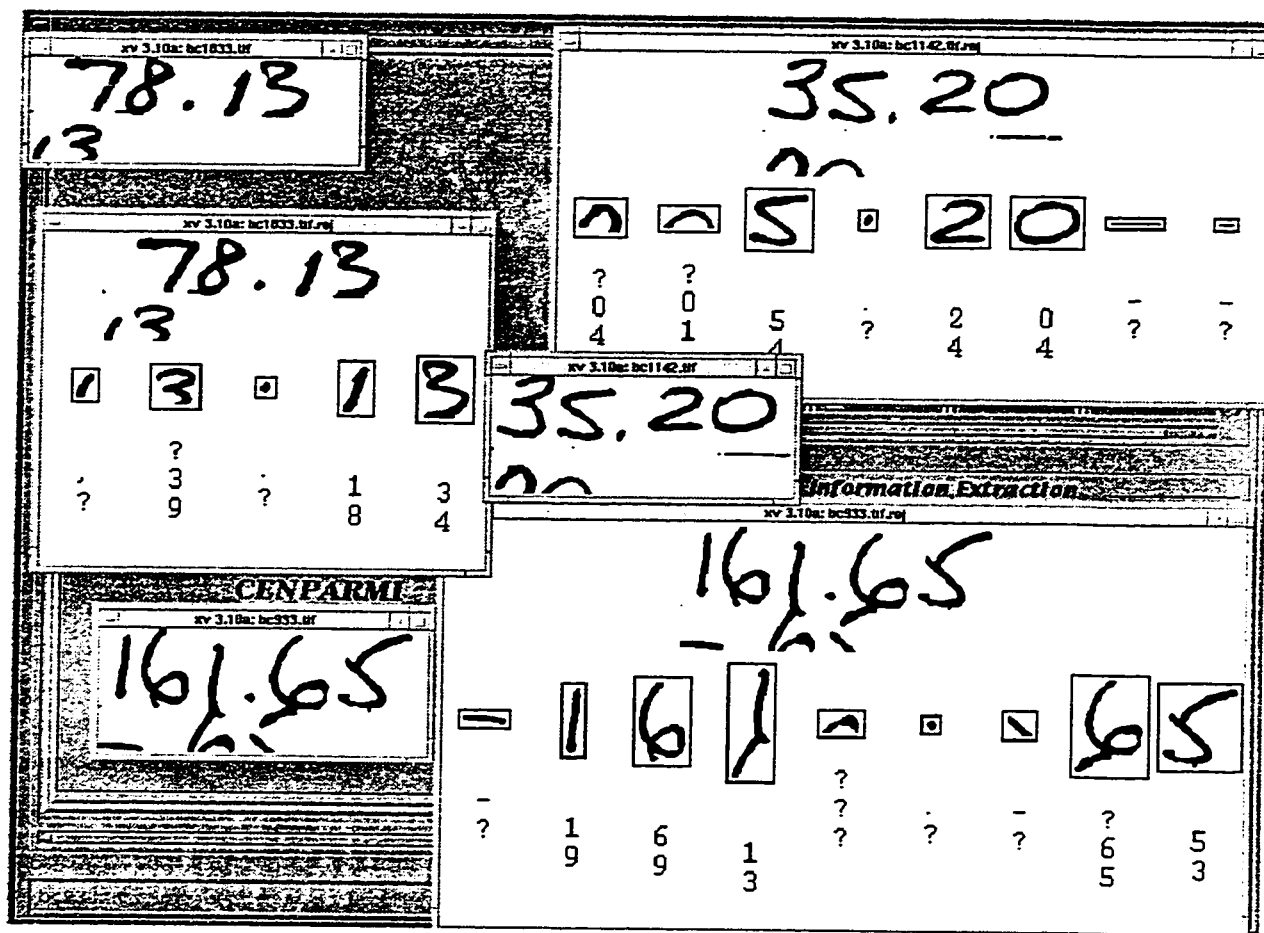 xv 3.10a: bc1833.tif
78.13
13
xv 3.10a: bc1142.tif.rej
35.20
5 . 2 0 - -
? ? 5 . 2 0 - -
0 0 4 ? 4 4 ? ?
4 1
xv 3.10a: bc1833.tif.rej
78.13
13
1 3 . 1 3
. ? . 1 3
? 3 ? 8 4
9
xv 3.10a: bc1142.tif
35.20
Information Extraction
CENPARMI
xv 3.10a: bc933.tif
161.65
xv 3.10a: bc933.tif.rej
161.65
- 1 6 1 . 6 5
- 1 6 1 ? . - ? 5
? 9 9 3 ? ? ? 6 3
? 5